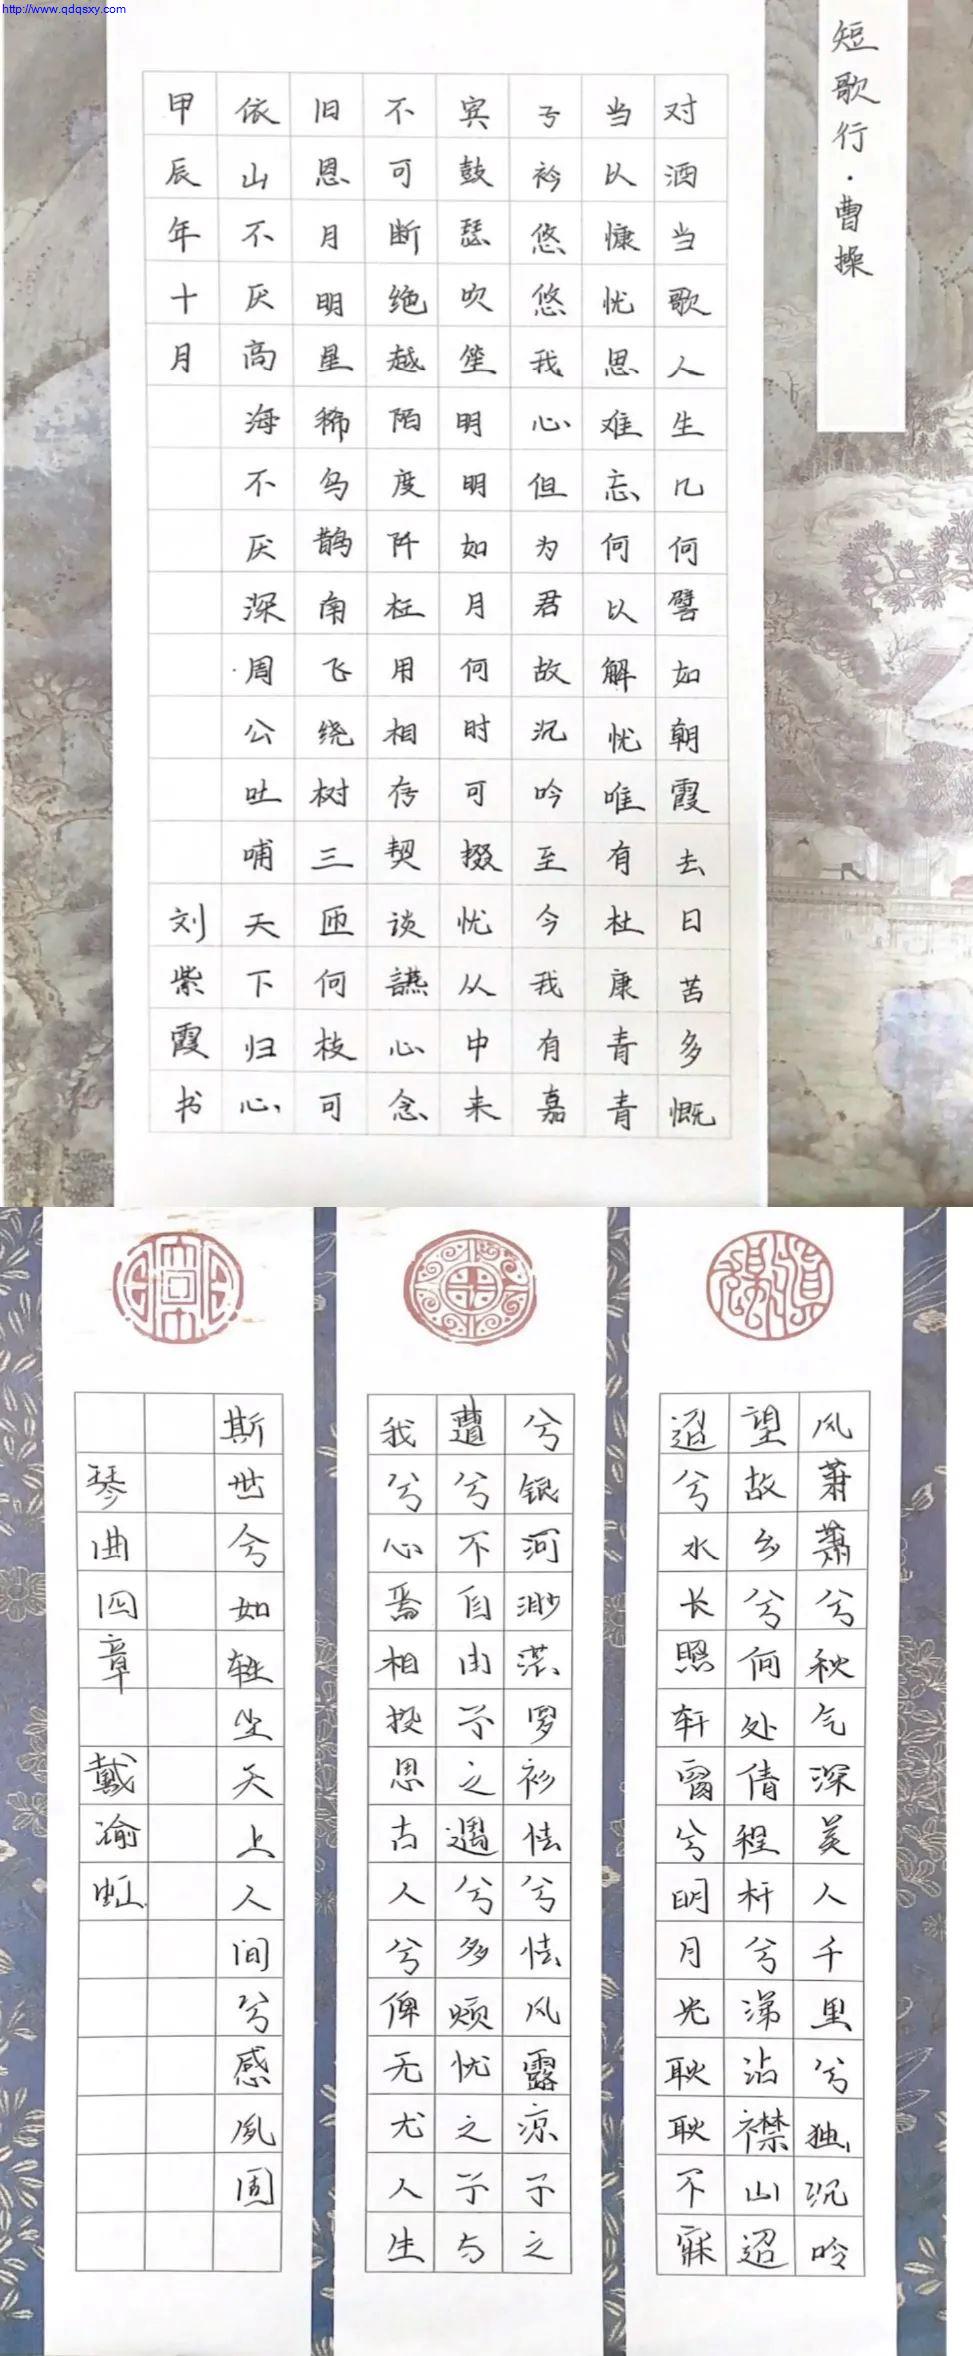 http://www.qdqsxy.com
短歌行·曹操
对酒当歌人生几何譬如朝霞去日苦多慨
当以慷忧思难忘何以解忧唯有杜康青青
子衿悠悠我心但为君故沉吟至今我有嘉
宾鼓瑟吹笙明明如月何时可掇忧从中来
不可断绝越陌度阡枉用相存契谈讌心念
旧恩月明星稀乌鹊南飞绕树三匝何枝可
依山不厌高海不厌深周公吐哺天下归心
甲辰年十月 刘紫霞书
风萧萧兮秋气深美人千里兮独沉吟
望故乡兮何处倚程杆兮涕沾襟山迢
迢兮水长照轩窗兮明月光耿耿不寐
兮银河渺茫罗衫怯兮怯风露凉予之
遭兮不自由予之遇兮多烦忧之予与
我兮心焉相投思古人兮俾无尤人生
斯世兮如轻尘天上人间兮感夙因
琴曲四章 戴渝虹